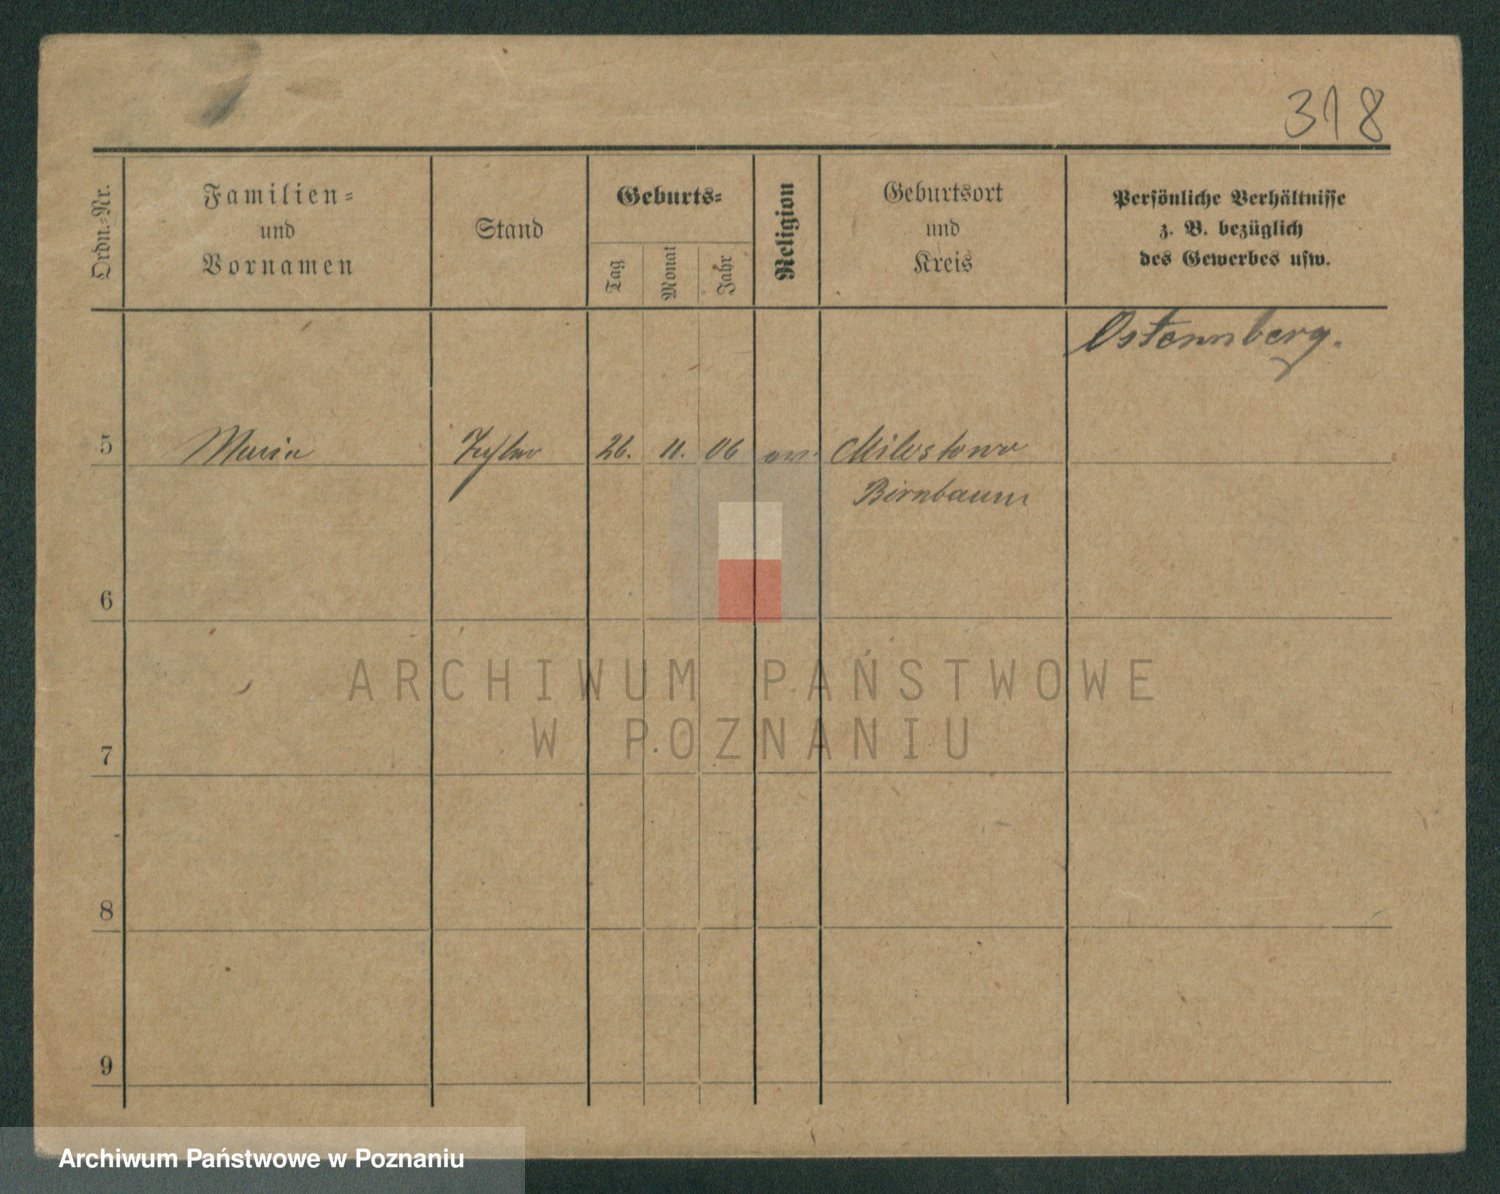 318
Ordn.-Nr.
Familien-
und
Vornamen
Stand
Geburts-
Tag
Monat
Jahr
Religion
Geburtsort
und
Kreis
Persönliche Verhältnisse
z. B. bezüglich
des Gewerbes usw.
Osternberg.
5 Maria 26. 11. 06 ev. Milostowo
Birnbaum
6
ARCHIWUM PAŃSTWOWE
W POZNANIU
7
8
9
Archiwum Państwowe w Poznaniu